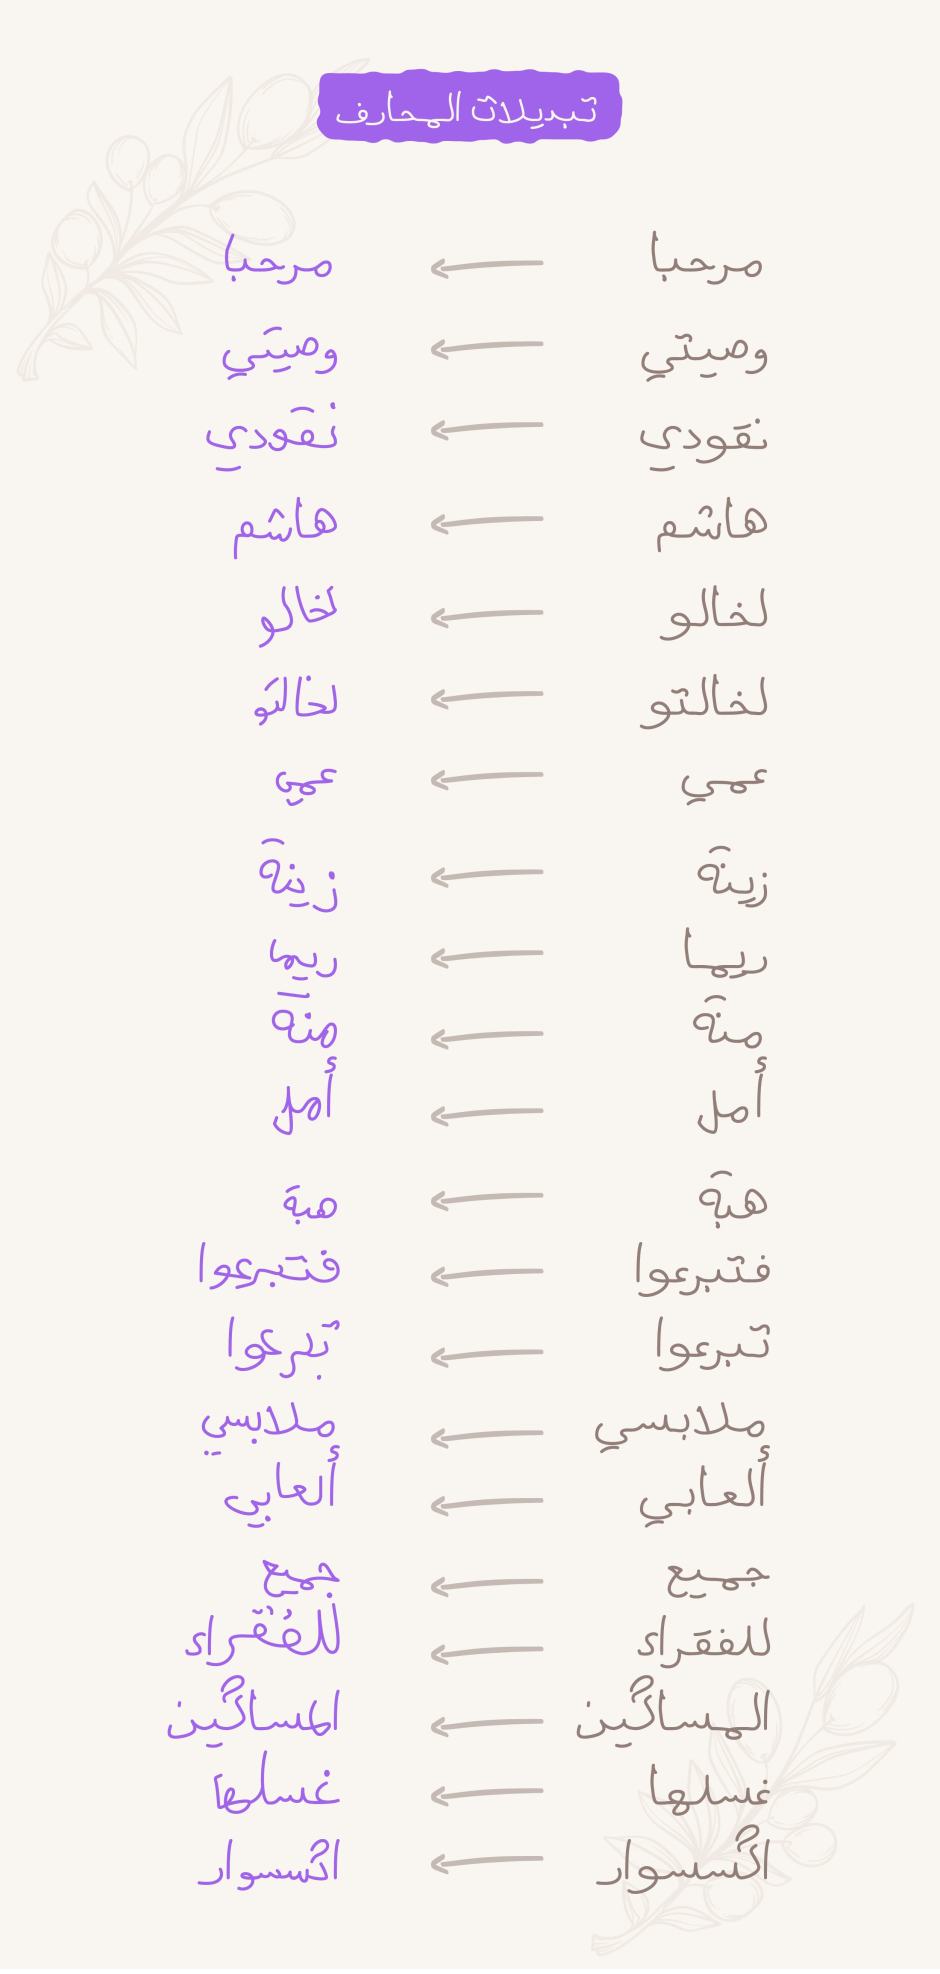 تبديلات المحارف
مرحبا ← مرحبا
وصيتي ← وصيتي
نقودي ← نقودي
هاشم ← هاشم
لخالو ← لخالو
لخالتو ← لخالتو
عمي ← عمي
زينة ← زينة
ريما ← ريما
منة ← منة
أمل ← أمل
هبة ← هبة
فتبرعوا ← فتبرعوا
تبرعوا ← تبرعوا
ملابسي ← ملابسي
ألعابي ← ألعابي
جميع ← جميع
للفقراء ← للفقراء
المساكين ← المساكين
غسلها ← غسلها
اكسسوار ← اكسسوار